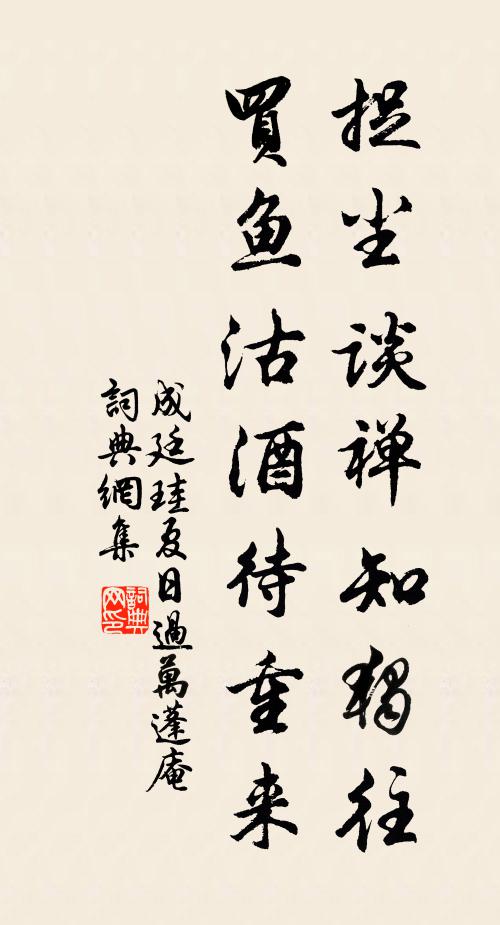 捉尘谈禅知獨往
買鱼沽酒待重来
成廷珪夏日過萬蓬庵
詞典網集
詞典
网印